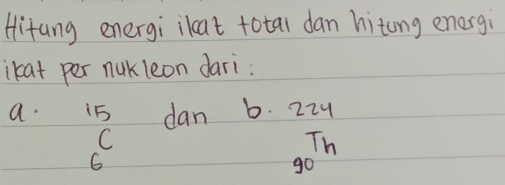 Hitung energi ikat total dan hitung energi
ikat per nukleon dari :
a. 15 dan b. 224
C Th
6 90